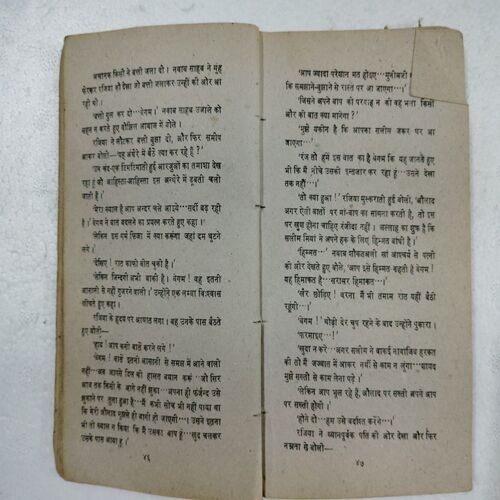 अचानक किसी ने बत्ती जला दी। नवाब साहब ने मुंह
फेरकर रजिया को देखा जो बत्ती जलाकर उन्हीं की ओर आ
रही थी।
'बत्ती गुल कर दो···बेगम।' नवाब साहब उजाले को
सहन न करते हुए बोझिल आवाज में बोले।
रजिया ने लौटकर बत्ती बुझा दी, और फिर समीप
आकर बोली—'यह अंधेरे में बैठे क्या कर रहे हैं?'
'उन चंद-एक टिमटिमाती हुई आरजुओं का तमाशा देख
रहा हूं जो आहिस्ता-आहिस्ता इस अन्धेरे में डूबती चली
जाती हैं।'
'मेरा ख्याल है आप अन्दर चले आइये···सर्दी बढ़ रही
है।' बेगम ने बात बदलने का प्रयत्न करते हुए कहा।
'लेकिन इस गर्म फिजा में क्या करूंगा जहां दम घुटने
लगे।'
'चलिए! रात काफी बीत चुकी है।'
'लेकिन जिन्दगी अभी बाकी है। बेगम! वह इतनी
आसानी से नहीं गुजरने वाली।' उन्होंने एक लम्बा निःश्वास
खींचते हुए कहा।
रजिया के हृदय पर आघात लगा। वह उनके पास बैठते
हुए बोली—
'हाय! आप कैसी बातें करने लगे!'
'बेगम! बातें इतनी आसानी से समझ में आने वाली
नहीं···अब आपसे दिल की हालत बयान करूं 'जो सिर
आज तक किसी के आगे नहीं झुका···अपना ही फर्जन्द उसे
झुकाने पर तुला हुआ है।' मैं कभी सोच भी नहीं पाया था
कि मेरी औलाद मुझसे ही बागी हो जाएगी···उसने इतना
भी तो ख्याल न किया कि मैं उसका आप हूं···खुद चलकर
उसके पास आया हूं।'
४६
'आप ज्यादा परेशान मत होइए···मुनीमजी
कि समझाने-बुझाने से रास्ते पर आ जाएगा।'
'जिसने अपने बाप की परवाह न की वह भला किसी
और की बात क्या मानेगा?'
'मुझे यकीन है कि आपका सलीम जरूर घर आ
जाएगा···'
'रंज तो हमें इस बात का है बेगम कि यह जानते हुए
भी कि मैं नीचे उसकी इन्तजार कर रहा हूं···उसने देखा
तक नहीं···।'
'तो क्या हुआ।' रजिया मुस्कराती हुई बोली, 'औलाद
अगर ऐसी बातों पर मां-बाप का सामना करती है, तो उस
पर खुश होना चाहिए रंजीदा नहीं। अल्लाह का शुक्र है कि
सलीम मियां ने अपने हक के लिए हिम्मत बांधी है।'
'हिम्मत···' नवाब शौकतअली खां आश्चर्य से पत्नी
की ओर देखते हुए बोले, 'आप इसे हिम्मत कहती हैं बेगम!
यह हिमाकत है···सरासर हिमाकत···।'
'खैर छोड़िए! वरना मैं भी तमाम रात यहीं बैठी
रहूंगी···।'
'बेगम!' थोड़ी देर चुप रहने के बाद उन्होंने पुकारा।
'फरमाइए···!'
'खुदा न करे···अगर सलीम ने वाकई नावाजिब हरकत
की तो मैं जज्बात में आकर नर्मी से काम न लूंगा···शायद
मुझे सख्ती से काम लेना पड़े।'
'लेकिन आप भूल रहे हैं, औलाद पर सख्ती अपने आप
पर सख्ती होगी।'
'होने दो···हम उसे बर्दाश्त करेंगे···।'
रजिया ने ध्यानपूर्वक पति की ओर देखा और फिर
नम्रता से बोली—
४७